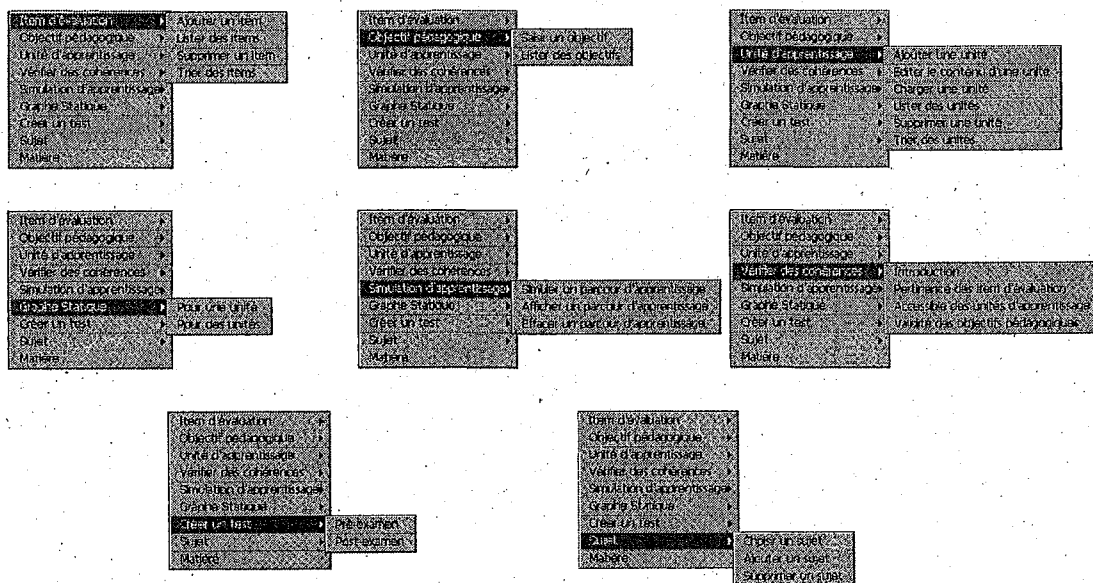 Item d'évaluation
Objectif pédagogique
Unité d'apprentissage
Vérifier des cohérences
Simulation d'apprentissage
Graphe Statique
Créer un test
Sujet
Matière
Ajouter un item
Lister des items
Supprimer un item
Trier des items
Item d'évaluation
Objectif pédagogique
Unité d'apprentissage
Vérifier des cohérences
Simulation d'apprentissage
Graphe Statique
Créer un test
Sujet
Matière
Saisir un objectif
Lister des objectifs
Item d'évaluation
Objectif pédagogique
Unité d'apprentissage
Vérifier des cohérences
Simulation d'apprentissage
Graphe Statique
Créer un test
Sujet
Matière
Ajouter une unité
Editer le contenu d'une unité
Charger une unité
Lister des unités
Supprimer une unité
Trier des unités
Item d'évaluation
Objectif pédagogique
Unité d'apprentissage
Vérifier des cohérences
Simulation d'apprentissage
Graphe Statique
Créer un test
Sujet
Matière
Pour une unité
Pour des unités
Item d'évaluation
Objectif pédagogique
Unité d'apprentissage
Vérifier des cohérences
Simulation d'apprentissage
Graphe Statique
Créer un test
Sujet
Matière
Simuler un parcour d'apprentissage
Afficher un parcour d'apprentissage
Effacer un parcour d'apprentissage
Item d'évaluation
Objectif pédagogique
Unité d'apprentissage
Vérifier des cohérences
Simulation d'apprentissage
Graphe Statique
Créer un test
Sujet
Matière
Introduction
Pertinence des item d'évaluation
Accessible des unités d'apprentissage
Validité des objectifs pédagogiques
Item d'évaluation
Objectif pédagogique
Unité d'apprentissage
Vérifier des cohérences
Simulation d'apprentissage
Graphe Statique
Créer un test
Sujet
Matière
Pré examen
Post examen
Item d'évaluation
Objectif pédagogique
Unité d'apprentissage
Vérifier des cohérences
Simulation d'apprentissage
Graphe Statique
Créer un test
Sujet
Matière
un sujet
Ajouter un sujet
Supprimer un sujet